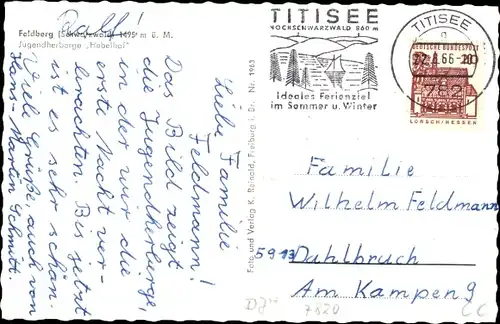 Ralf!
Feldberg (Schwarzwald) 1495 m ü. M.
Jugendherberge „Hebelhof"
Liebe Familie
Feldmann!
Das Bild zeigt
die Jugendherberge,
in der wir die
erste Nacht ver-
brachten. Bis jetzt
ist es sehr schön.
Viele Grüße, auch von
Hans-Martin Schmitt.
Foto und Verlag K. Reinold, Freiburg i. Br. Nr. 1963
TITISEE
HOCHSCHWARZWALD 860 m
Ideales Ferienziel
im Sommer u. Winter
TITISEE
a
22.8.66-20
782
DEUTSCHE BUNDESPOST
LORSCH/HESSEN
Familie
Wilhelm Feldmann
5913
Dahlbruch
Am Kampen 9
7820
CC